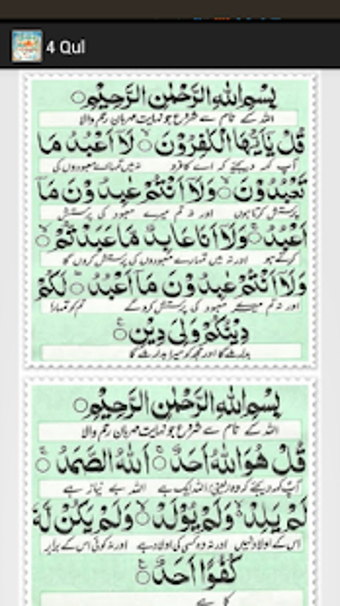 4 Qul
بِسْمِ اللهِ الرَّحْمٰنِ الرَّحِيْمِ
اللہ کے نام سے شروع جو نہایت مہربان رحم والا
قُلْ يٰۤاَيُّهَا الْكٰفِرُوْنَ ۙ لَاۤ اَعْبُدُ مَا
آپ کہہ دیجئے کہ اے کافرو نہ میں تمہارے معبودوں کی
تَعْبُدُوْنَ ۙ وَلَاۤ اَنْتُمْ عٰبِدُوْنَ مَاۤ
پرستش کرتا ہوں اور نہ تم میرے معبود کی پرستش
اَعْبُدُ ۚ وَلَاۤ اَنَا عَابِدٌ مَّا عَبَدْتُّمْ ۙ
کرتے ہو اور نہ میں تمہارے معبودوں کی پرستش کروں گا
وَلَاۤ اَنْتُمْ عٰبِدُوْنَ مَاۤ اَعْبُدُ ۗ لَكُمْ
اور نہ تم میرے معبود کی پرستش کرو گے تم کو تمہارا
دِيْنُكُمْ وَلِيَ دِيْنِ
بدلہ ملے گا اور مجھ کو میرا بدلہ ملے گا
بِسْمِ اللهِ الرَّحْمٰنِ الرَّحِيْمِ
اللہ کے نام سے شروع جو نہایت مہربان رحم والا
قُلْ هُوَ اللهُ اَحَدٌ ۚ اَللهُ الصَّمَدُ ۚ
آپ کہہ دیجئے کہ وہ یعنی اللہ ایک ہے اللہ بے نیاز ہے
لَمْ يَلِدْ ۙ وَلَمْ يُوْلَدْ ۙ وَلَمْ يَكُنْ لَّهٗ
اس کے اولاد نہیں اور نہ وہ کسی کی اولاد ہے اور نہ کوئی اس کے برابر
كُفُوًا اَحَدٌ